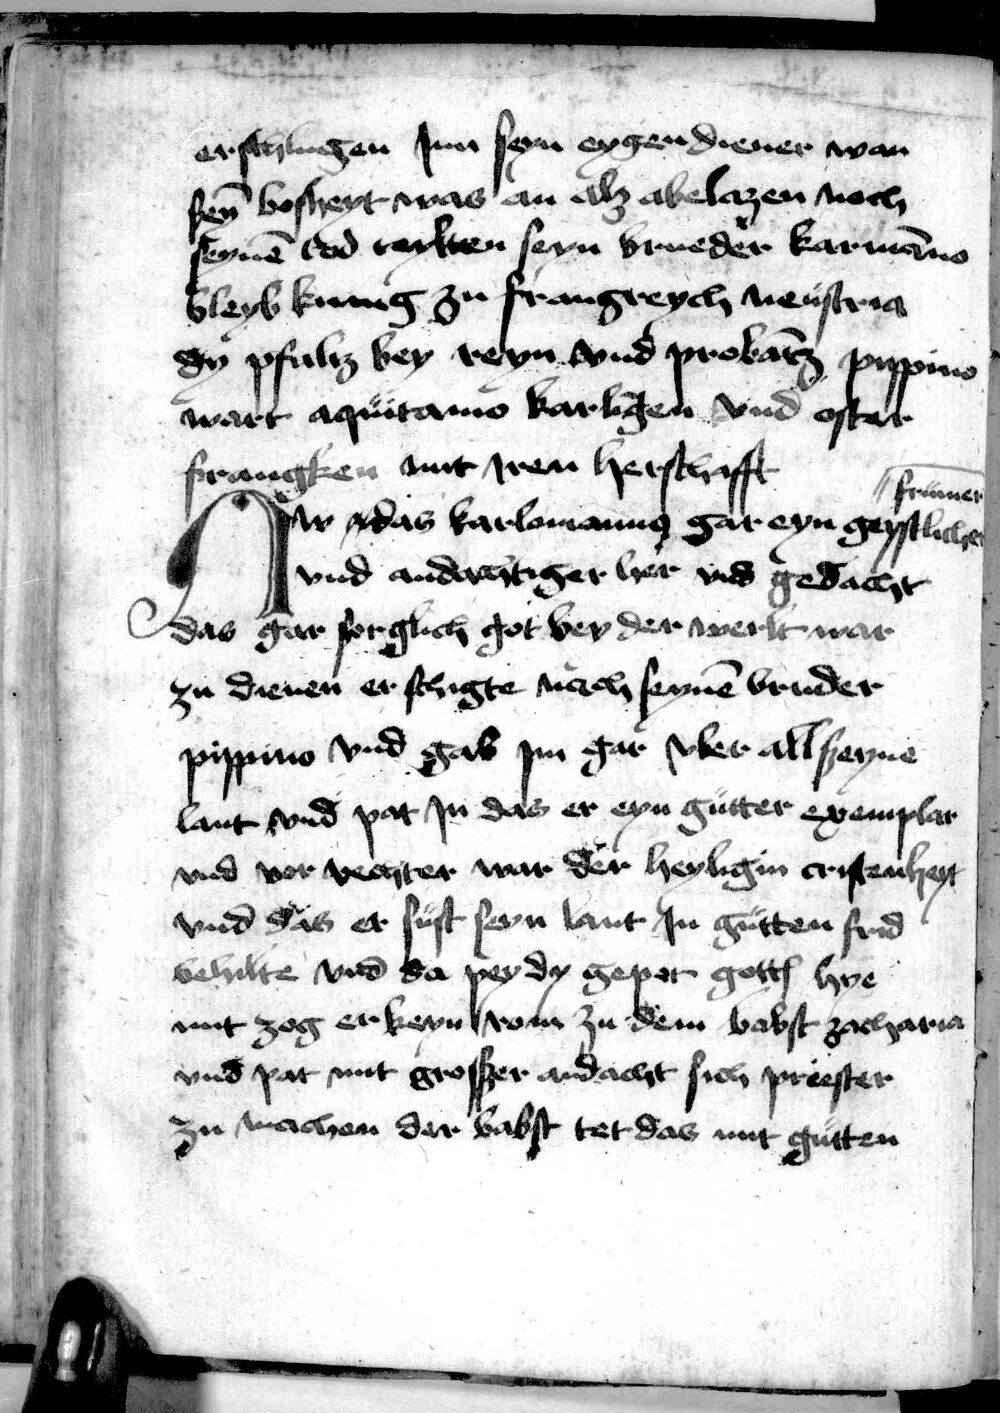 erschlugen Inn seyn eygen diener wan
seȳ bosheyt was an alz abelazen noch
seynē tod teylten seyn brueder karmāno
bleyb kunig zu frangreych neustria
dy pfaltz bey reyn vnd probātz pippino
wart aquitanio karlīgen vnd oster
frangken mit iren herschafft
frumer
Nw das karlomannus gar eyn geystlicher
vnd andechtiger her vnd gedacht
das gar sorglich got bey der werlt war
zu dienen er schigte nach seynē bruder
pippino vnd gab im gar vber all seyne
lant vnd pat In das er eyn gutter exemplar
vnd vor vechter war der heyligin cristenheyt
vnd das er sust seyn lant In gutten frid
behilte vnd da pey dy gepot gottes hye
mit zog er keyn rom zu dem babst zacharia
vnd pat mit grosser andacht sich priester
zu machen der babst tet das mit gutten